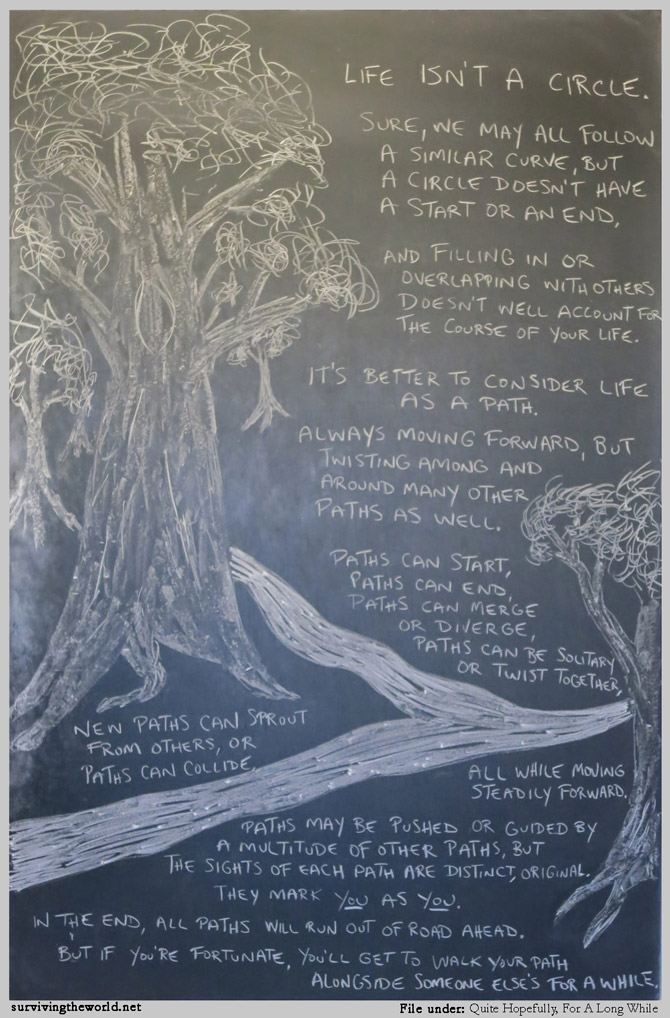 LIFE ISN'T A CIRCLE.
SURE, WE MAY ALL FOLLOW
A SIMILAR CURVE, BUT
A CIRCLE DOESN'T HAVE
A START OR AN END,
AND FILLING IN OR
OVERLAPPING WITH OTHERS
DOESN'T WELL ACCOUNT FOR
THE COURSE OF YOUR LIFE.
IT'S BETTER TO CONSIDER LIFE
AS A PATH.
ALWAYS MOVING FORWARD, BUT
TWISTING AMONG AND
AROUND MANY OTHER
PATHS AS WELL.
PATHS CAN START,
PATHS CAN END,
PATHS CAN MERGE
OR DIVERGE,
PATHS CAN BE SOLITARY
OR TWIST TOGETHER,
NEW PATHS CAN SPROUT
FROM OTHERS, OR
PATHS CAN COLLIDE,
ALL WHILE MOVING
STEADILY FORWARD.
PATHS MAY BE PUSHED OR GUIDED BY
A MULTITUDE OF OTHER PATHS, BUT
THE SIGHTS OF EACH PATH ARE DISTINCT, ORIGINAL.
THEY MARK YOU AS YOU.
IN THE END, ALL PATHS WILL RUN OUT OF ROAD AHEAD.
BUT IF YOU'RE FORTUNATE, YOU'LL GET TO WALK YOUR PATH
ALONGSIDE SOMEONE ELSE'S FOR A WHILE.
survivingtheworld.net
File under: Quite Hopefully, For A Long While